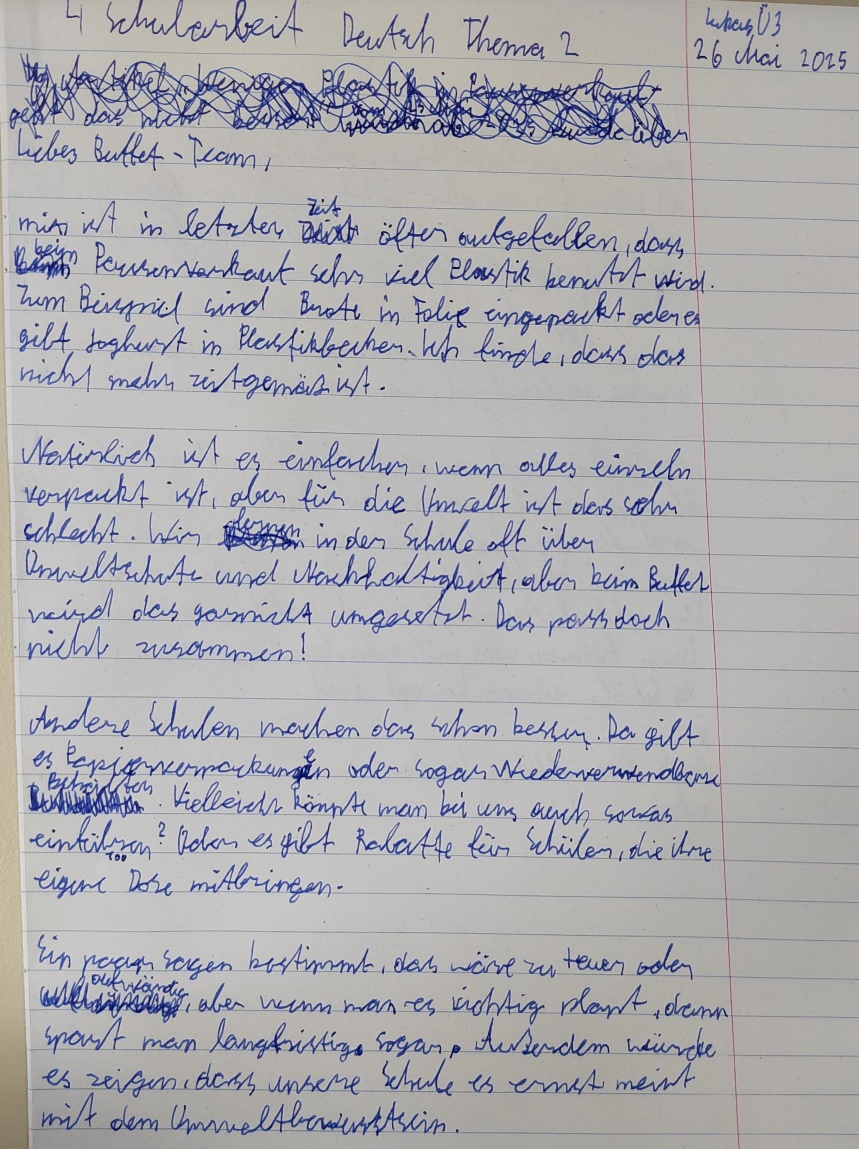 4 Schularbeit Deutsch Thema 2
Lukas Ü3
26 Mai 2025
geht das nicht besser
Liebes Buffet-Team,
mir ist in letzter Zeit öfter aufgefallen, dass
beim Pausenverkauf sehr viel Plastik benutzt wird.
Zum Beispiel sind Brote in Folie eingepackt oder es
gibt Joghurt in Plastikbecher. Ich finde, dass das
nicht mehr zeitgemäs ist.
Natürlich ist es einfacher, wenn alles einzeln
verpackt ist, aber für die Umwelt ist das sehr
schlecht. Wir lernen in der Schule oft über
Umweltschutz und Nachhaltigkeit, aber beim Buffet
wird das garnicht umgesetzt. Das pass doch
nicht zusammen!
Andere Schulen machen das schon besser. Da gibt
es Papierverpackungen oder sogar Wiederverwendbare
Behälter. Vielleicht könnte man bei uns auch sowas
einführen? Oder es gibt Rabatte für Schüler, die ihre
eigene Dose mitbringen.
Ein paar sagen bestimmt, das wäre zu teuer oder
aufwändig, aber wenn man es richtig plant, dann
spart man langfristig sogar. Außerdem würde
es zeigen, dass unsere Schule es ernst meint
mit dem Umweltbewusstsein.